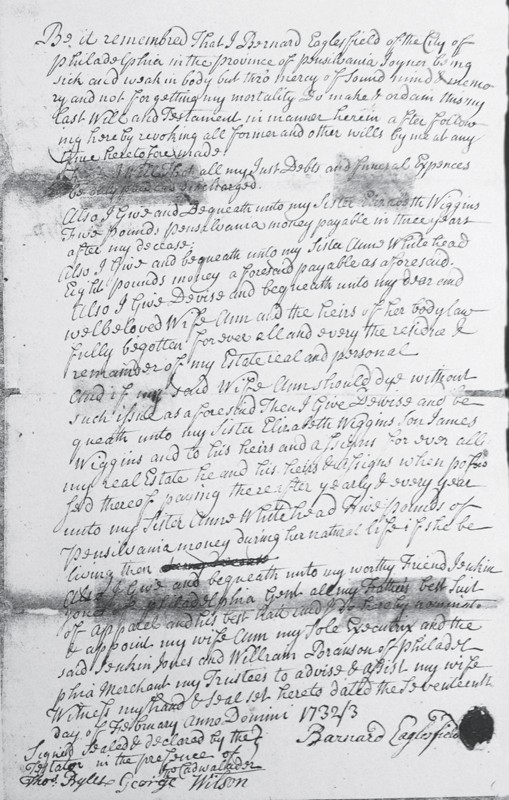 Be it remembered That I Bernard Eaglesfield of the City of
philadelphia in the province of pensilvania Joyner being
sick and weak in body but thro mercy of sound mind & memo
ry and not forgetting my mortality Do make & ordain this my
Last Will and Testament in manner herein after follow
ing hereby revoking all former and other wills by me at any
time heretofore made.
all my Just Debts and funeral Expences
be discharged.
Also I Give and Bequeath unto my Sister Elizabeth Wiggins
Five pounds pensilvania money payable in three years
after my decease;
Also I Give and bequeath unto my Sister Anne Whitehead
Eight pounds money aforesaid payable as aforesaid.
Also I Give Devise and bequeath unto my dear and
welbeloved Wife Ann and the heirs of her body law
fully begotten for ever all and every the residue &
remainder of my Estate real and personal
And if my said Wife Ann should dye without
such issue as aforesaid Then I Give Devise and be
queath unto my Sister Elizabeth Wiggins Son James
Wiggins and to his heirs and assigns for ever all
my real Estate he and his heirs & assigns when posses
sed thereof paying thereafter yearly & every year
unto my Sister Anne Whitehead Five pounds of
Pensilvania money during her natural life if she be
living then
Also I Give and bequeath unto my worthy Friend Jenkin
Jones of philadelphia Gent all my Fathers best Suit
of apparel and his best hatt and I do hereby nominate
& appoint my wife Ann my Sole Executrix and the
said Jenkin Jones and William Branson of philadel
phia Merchant my Trustees to advise & assist my wife
Witness my hand & seal set hereto dated the Seventeenth
day of February Anno Domini 1732/3
Signed sealed & declared by the
Testator in the presence of
Barnard Eaglesfield
Tho Cadwalader
Thos. Byles George Wilson